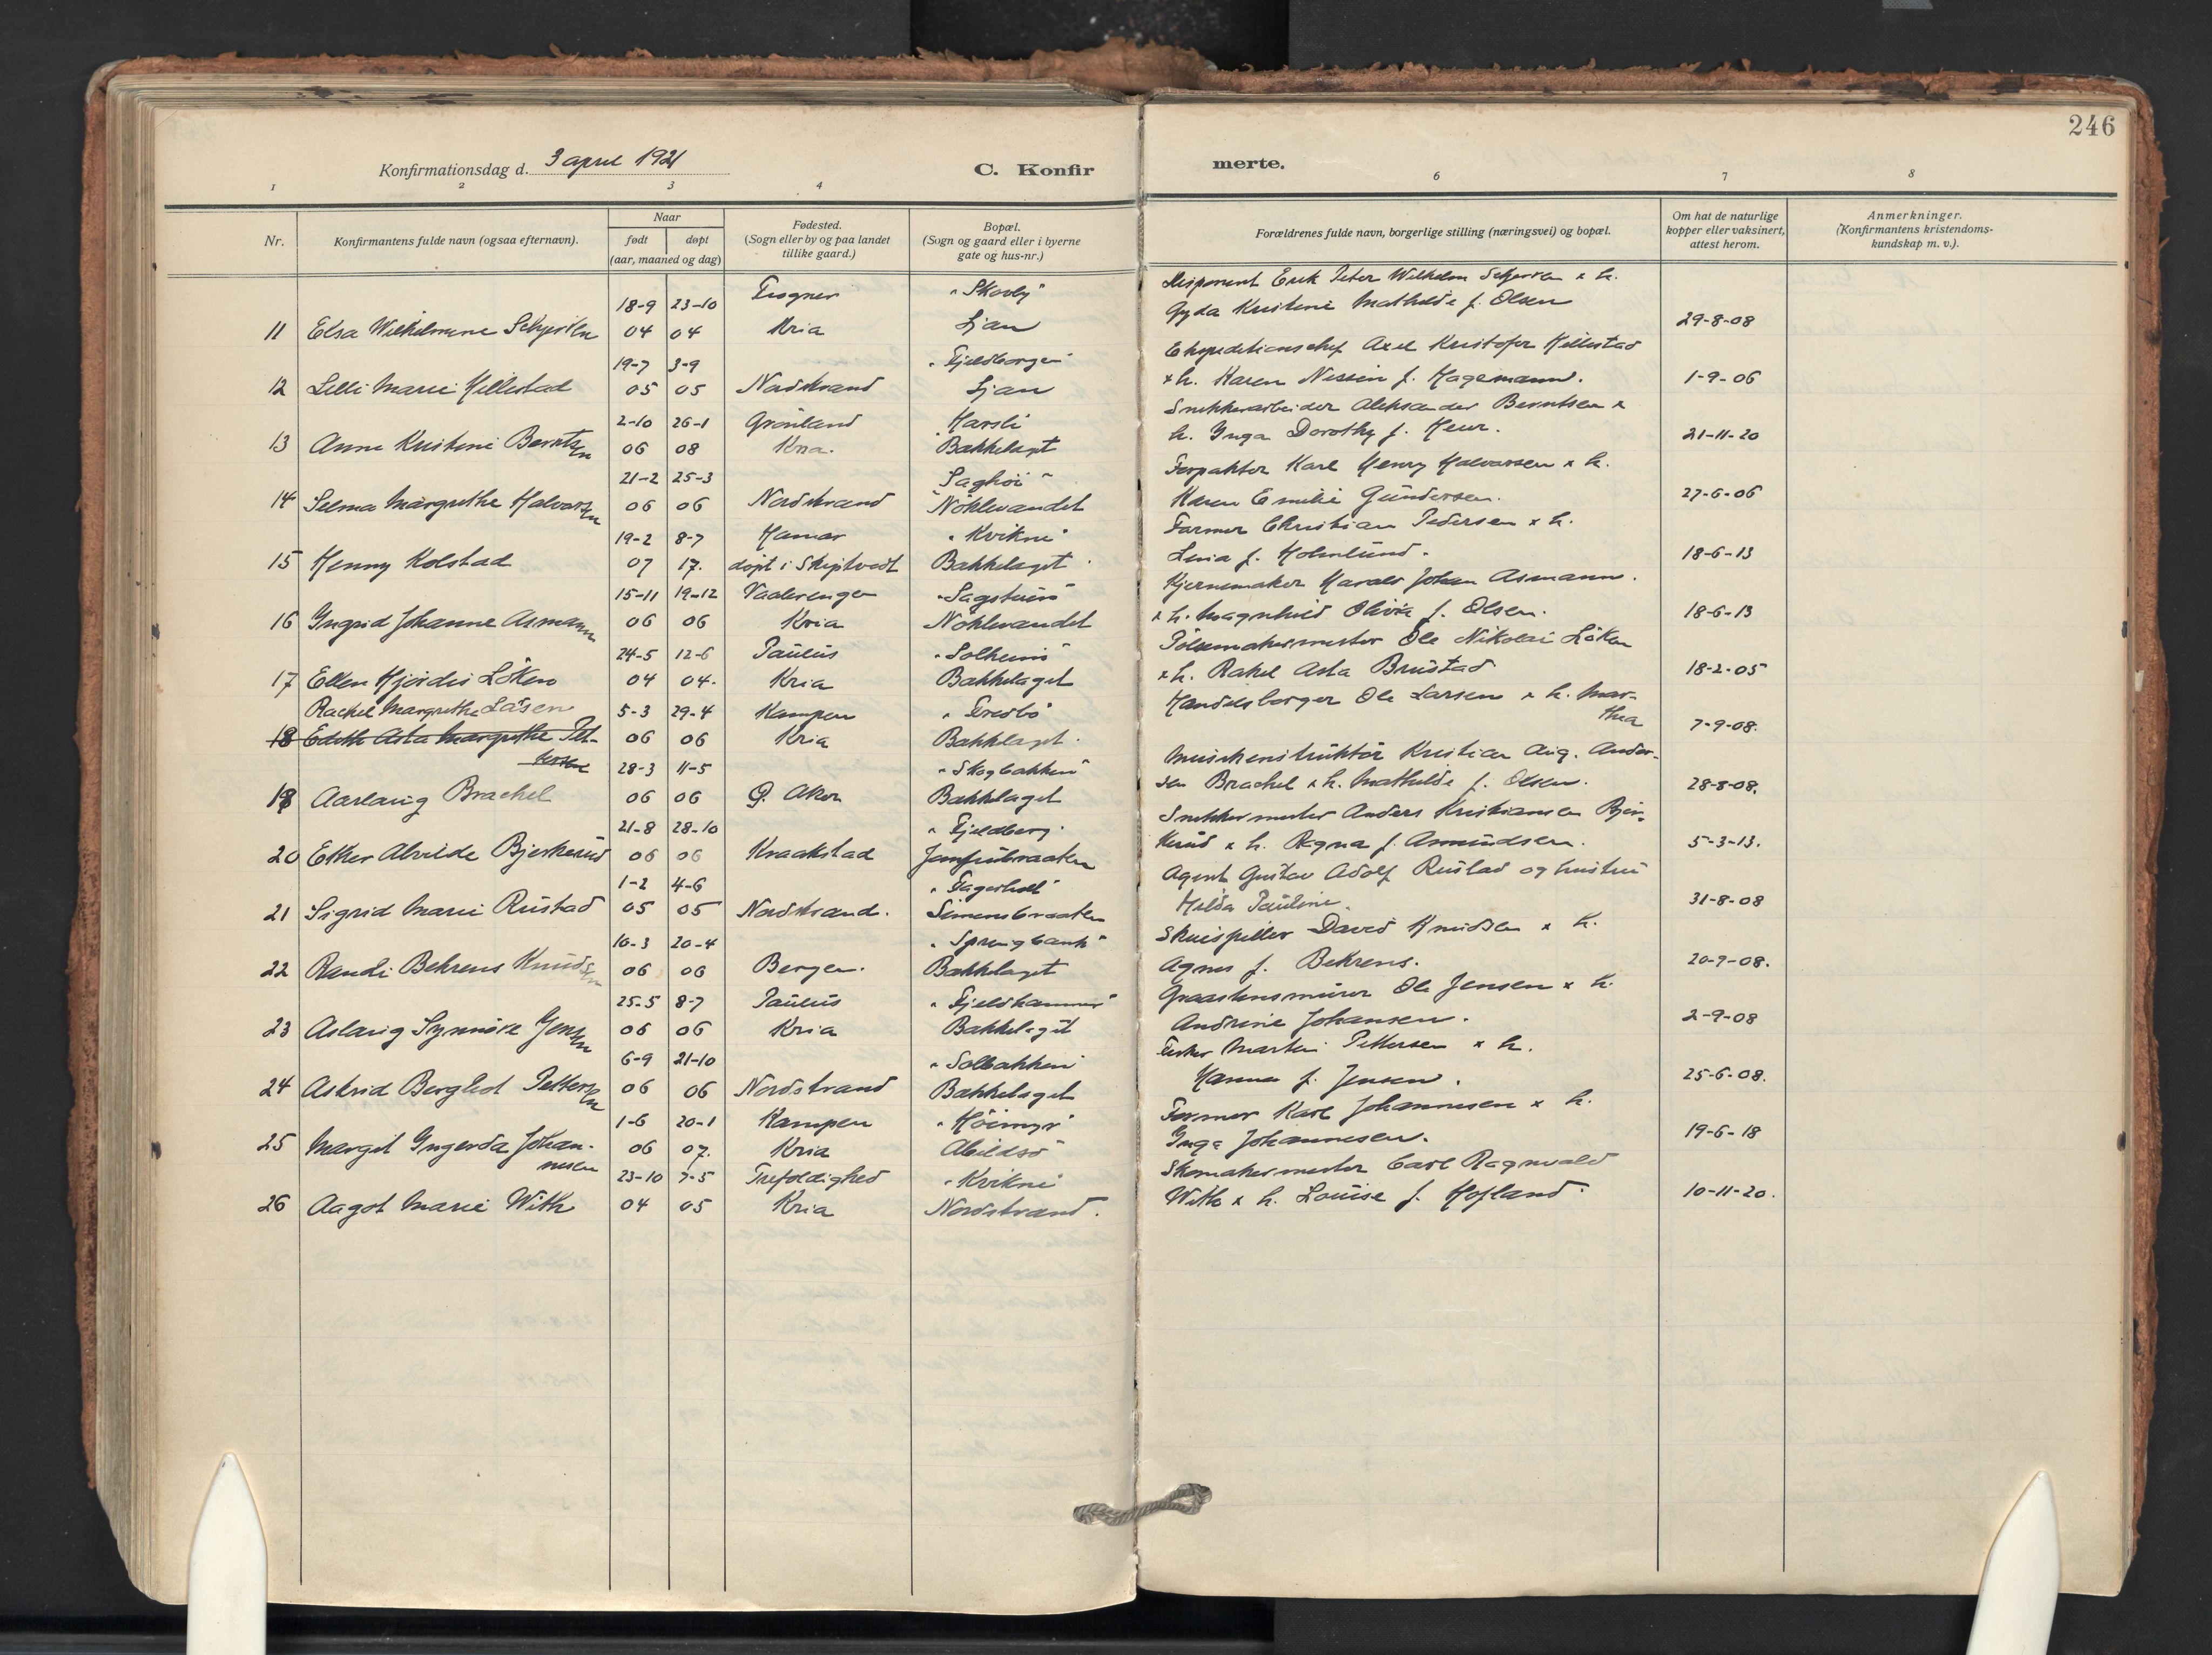 246
Konfirmationsdag d. 3 april 1921
C. Konfirmerte.
1 2 3 4 6 7 8
Nr.
Konfirmantens fulde navn (ogsaa efternavn).
Naar
født døpt
(aar, maaned og dag)
Fødested.
(Sogn eller by og paa landet
tillike gaard.)
Bopæl.
(Sogn og gaard eller i byerne
gate og hus-nr.)
Forældrenes fulde navn, borgerlige stilling (næringsvei) og bopæl.
Om hat de naturlige
kopper eller vaksinert,
attest herom.
Anmerkninger.
(Konfirmantens kristendoms-
kundskap m. v.).
18-9 23-10 Frogner "Skovly" Disponent Erik Peter Wilhelm x h.
11 Elsa Wilhelmine 04 04 Kria Ljan Gyda Kristine Mathilde f. Olsen 29-8-08
19-7 3-9 "Fjeldborgen" Ekspeditionschef Axel Kristofer Killestad
12 Lilli Marie Killestad 05 05 Nordstrand Ljan x h. Karen f. Hagemann. 1-9-06
2-10 26-1 Grønland Harsli Snekkerarbeider Aleksander Berntsen x
13 Anne Kristine Berntsen 06 08 Kria. Bakkelaget h. Inga Dorothy f. 21-11-20
21-2 25-3 Saghøi" Forpakter Karl Henry Halvorsen x h.
14 Selma Margrethe Halvorsen 06 06 Nordstrand Nøklevandet Karen Emilie Gundersen. 27-6-06
19-2 8-7 Hamar "Kvikne" Former Christian Pedersen x h.
15 Henny Kolstad 07 17. døpt i Skiptvedt Bakkelaget f. Holmlund. 18-6-13
15-11 19-12 Vaalerengen "Sagstuen" Kjernemaker Harald Johan Asmann.
16 Ingrid Johanne Asmann 06 06 Kria Nøklevandet x h. Magnhild Olivia f. Olsen. 18-6-13
24-5 12-6 Paulus "Solheim" Pølsemakermester Ole Nikolai Løken
17 Ellen Hjørdis Løken 04 04. Kria Bakkelaget x h. Rakel Asta Brustad 18-2-05
Rachel Margrethe Larsen 5-3 29-4 Kampen Handelsborger Ole Larsen x h. Mar-
18 Edith Asta Margrethe Pet- 06 06 Kria Bakklaget. thea 7-9-08.
tersen 28-3 11-5 "Skogbakken" Musikinstruktør Kristian Aug. Ander-
19 Aaslaug Brachel 06 06 Ø. Aker Bakklaget sen Brachel x h. Mathilde f. Olsen. 28-8-08.
21-8 28-10 "Fjeldberg" Snekkermester Anders Kristiansen Bjer-
20 Esther Alvilde Bjerkerud 06 06 Kraakstad Jomfrubraaten kerud x h. Ragna f. Asmundsen. 5-3-13.
1-2 4-6 "Fagerholt" Agent Gustav Adolf Rustad og hustru
21 Sigrid Marie Rustad 05 05 Nordstrand. Simensbraaten Hilda Pauline. 31-8-08
10-3 20-4 "Springbank" Skuespiller David Knudsen x h.
22 Randi Behrens Knudsen 06 06 Bergen. Bakklaget Agnes f. Behrens. 20-7-08.
25-5 8-7 Paulus "Fjeldhammer" Graastensmurer Ole Jensen x h.
23 Aslaug Synnøve Jensen 06 06 Kria Bakkelaget Andrine Johansen. 2-9-08
6-9 21-10 "Solbakken Fisker Martin Pettersen x h.
24 Astrid Bergliot Pettersen 06 06 Nordstrand Bakkelaget Hanna f. Jensen. 25-6-08.
1-6 20-1 Kampen "Høimyr" Former Karl Johannesen x h.
25 Margit Ingerda Johan- 06 07. Kria Abildsø Inga Johannesen. 19-6-18
nesen 23-10 7-5 Trefoldighed "Kvikne Skomakermester Carl Ragnvald
26 Aagot Marie With 04 05 Kria Nordstrand. With x h. Louise f. Hofland. 10-11-20.